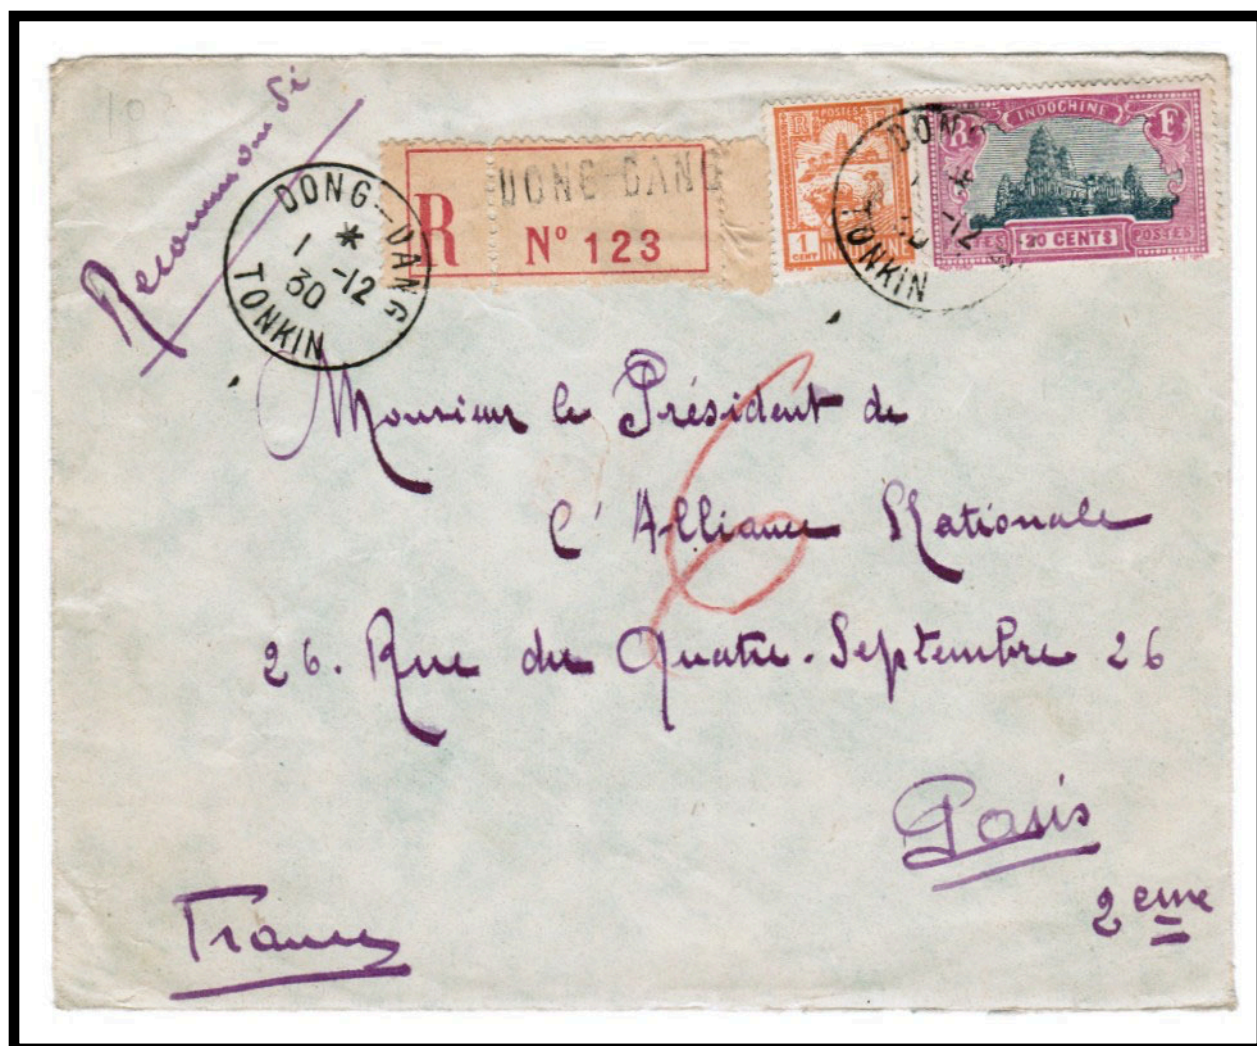 Recommandé
DONG-DANG
1 * -12
30
TONKIN
DONG-DANG
R N° 123
RF POSTES
1 CENT
INDOCHINE
RF INDOCHINE
POSTES 20 CENTS POSTES
DONG
-12
TONKIN
Monsieur le Président de
l'Alliance Nationale
26. Rue du Quatre-Septembre 26
Paris
2eme
France
6